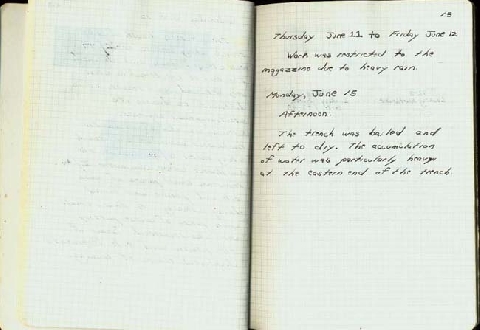 13
Thursday June 11 to Friday June 12
Work was restricted to the
magazine due to heavy rain.
Monday, June 15
Afternoon
The trench was bailed and
left to dry. The accumulation
of water was particularly heavy
at the eastern end of the trench